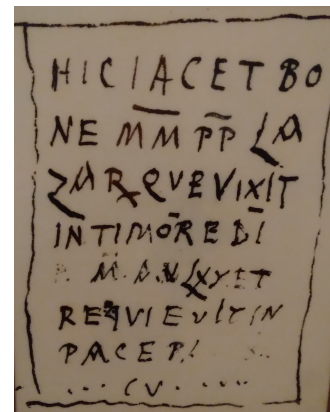 HIC IACET BO
NE MM PP LA
ZAR QVE VIXIT
IN TIMORE DI
REQVIEVIT IN
PACE